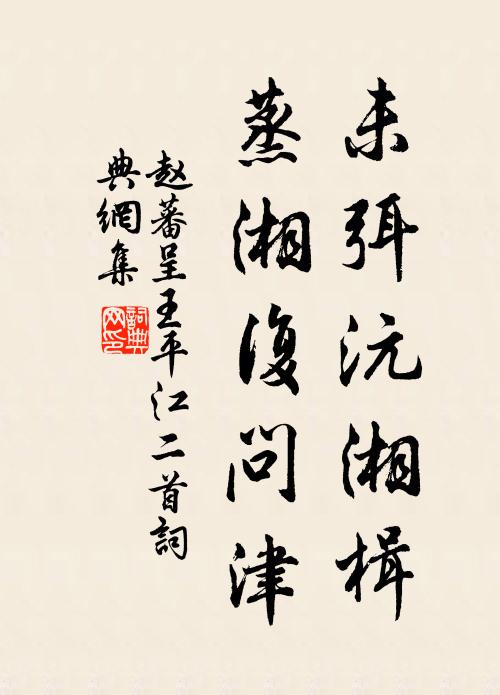 未弭沅湘楫
蒸湘復问津
赵蕃呈王平江二首詞
典網集
詞典
网印